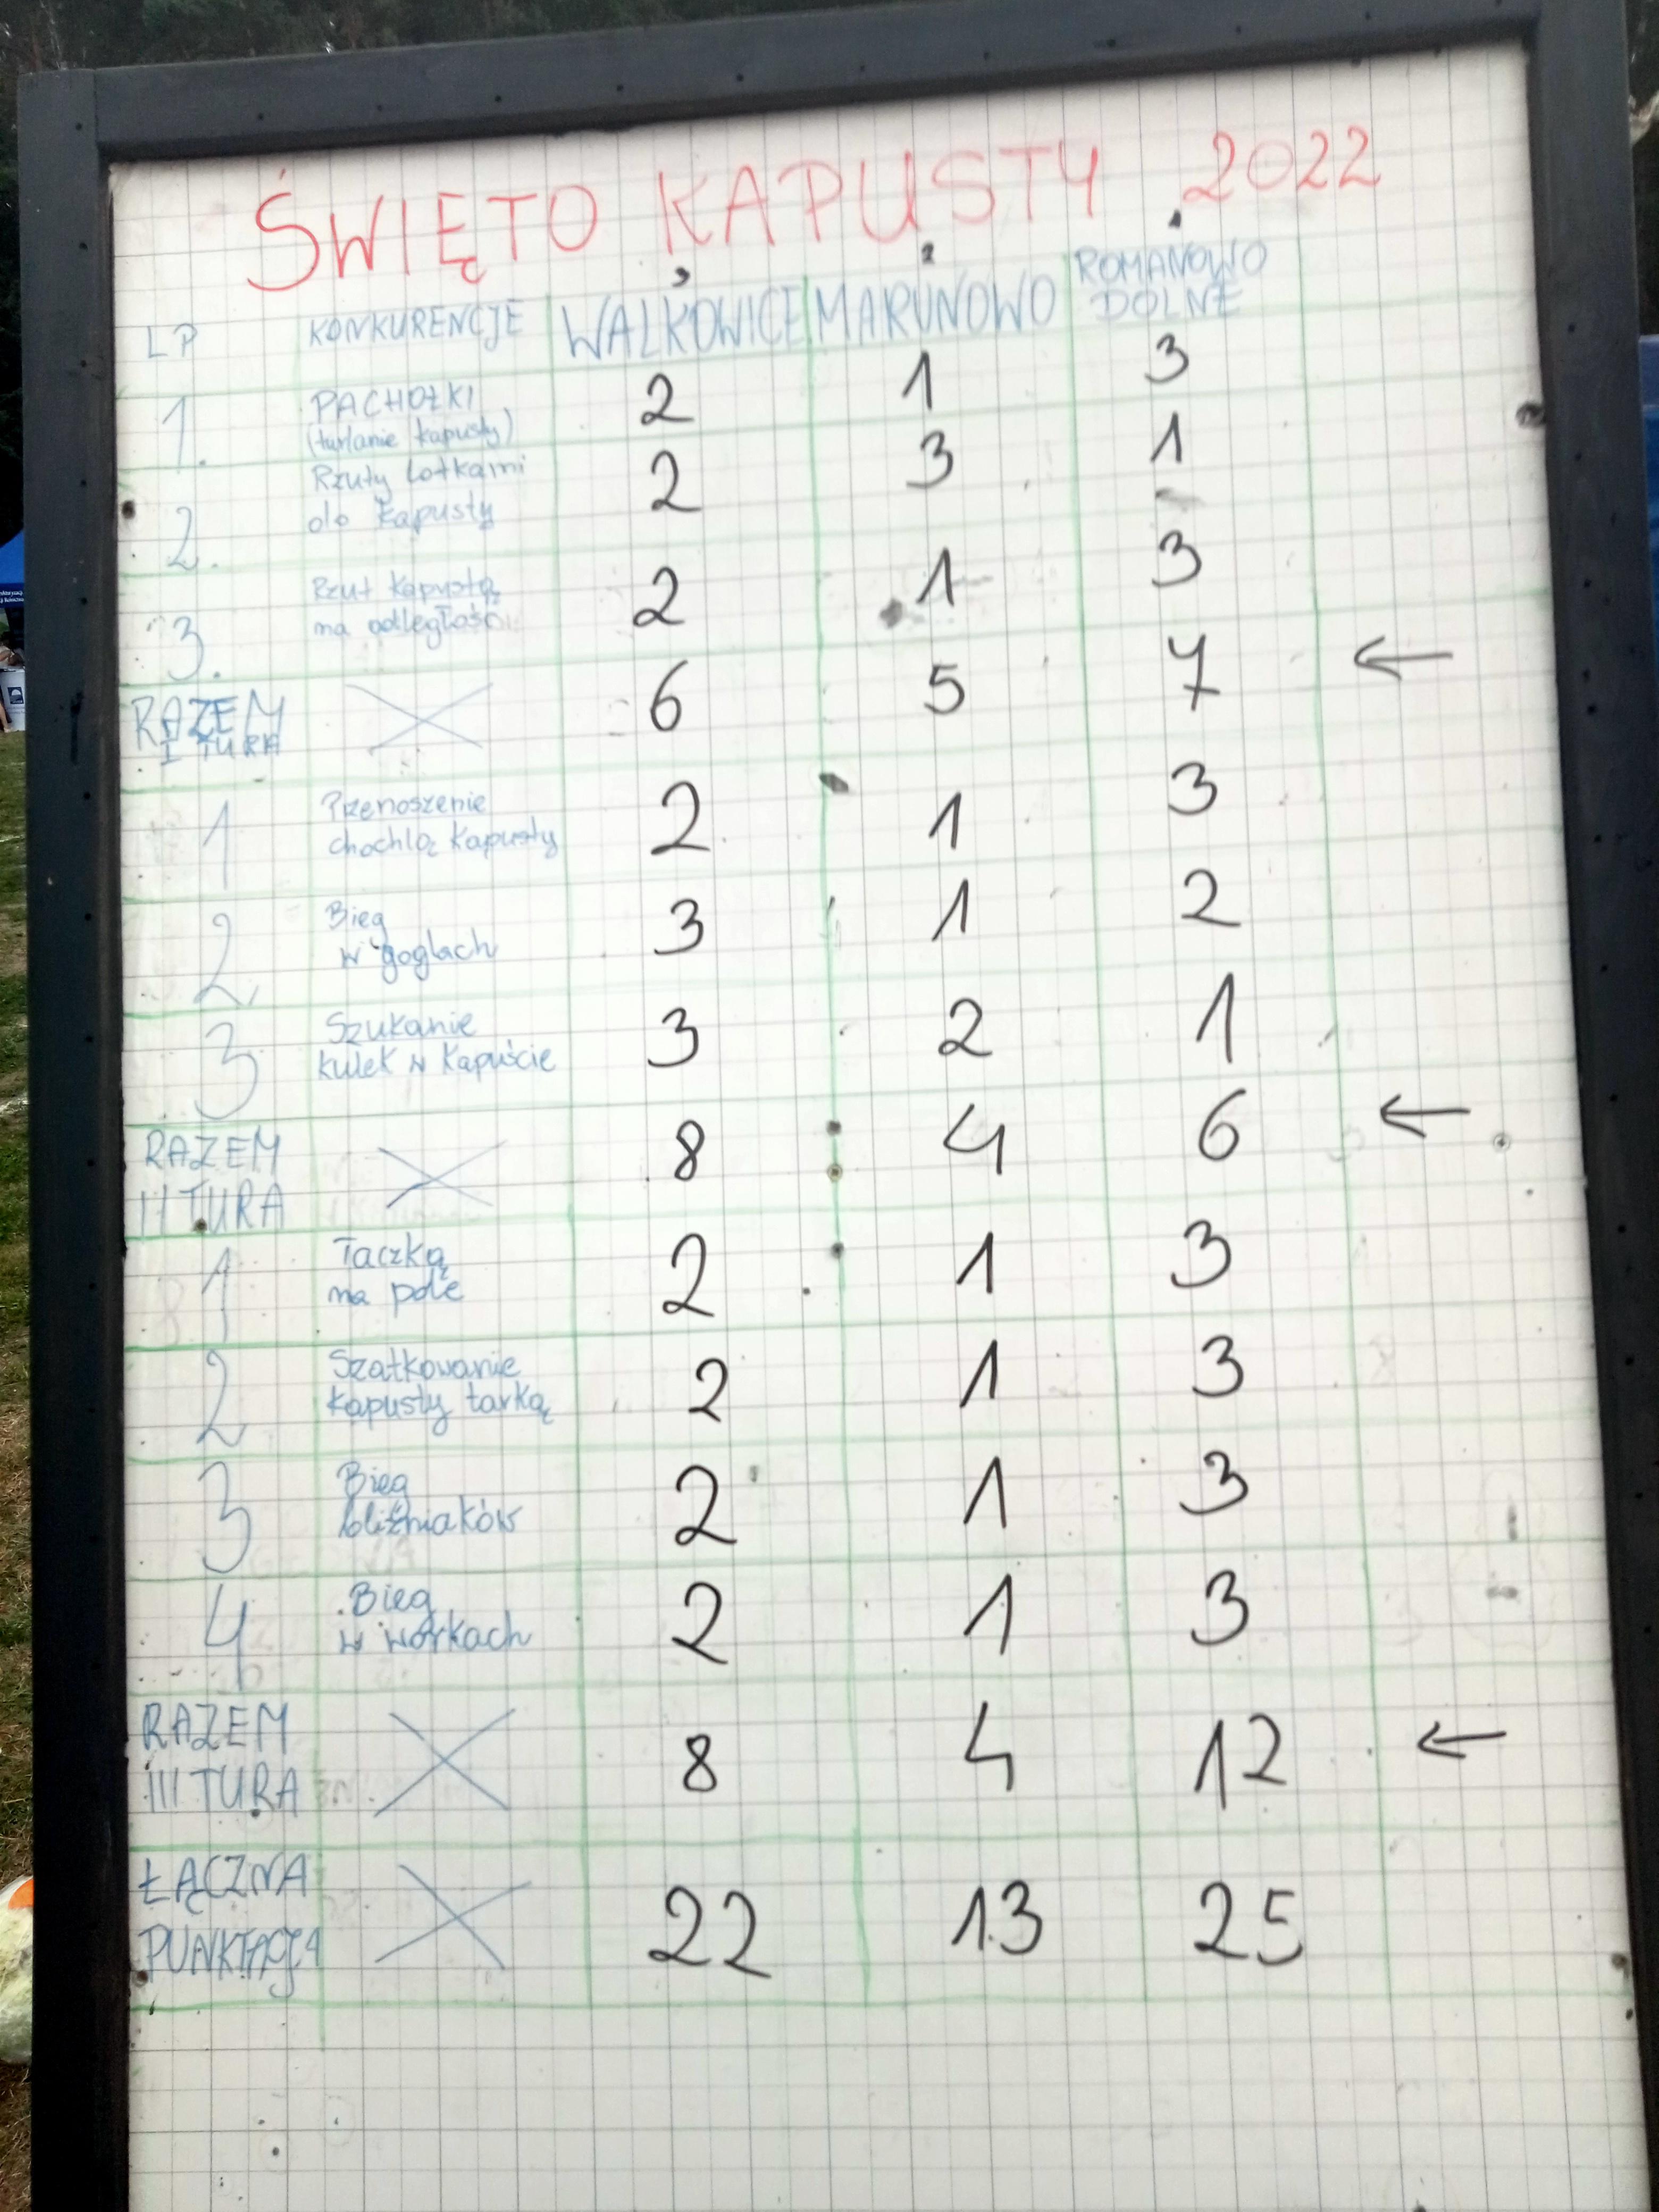 ŚWIĘTO KAPUSTY 2022
LP KONKURENCJE WALKOWICE MARUNOWO ROMANOWO
DOLNE
1. PACHOŁKI 2 1 3
(turlanie kapusty)
2. Rzuty lotkami 2 3 1
do kapusty
3. Rzut kapustą 2 1 3
na odległość
RAZEM 6 5 7 ←
I TURA
1 Przenoszenie 2 1 3
chochlą kapusty
2. Bieg 3 1 2
w goglach
3 Szukanie 3 2 1
kulek w kapuście
RAZEM 8 4 6 ←
II TURA
1 Taczką 2 1 3
na pole
2 Szatkowanie 2 1 3
kapusty tarką
3 Bieg 2 1 3
bliźniaków
4 Bieg 2 1 3
w workach
RAZEM 8 4 12 ←
III TURA
ŁĄCZNA 22 13 25
PUNKTACJA